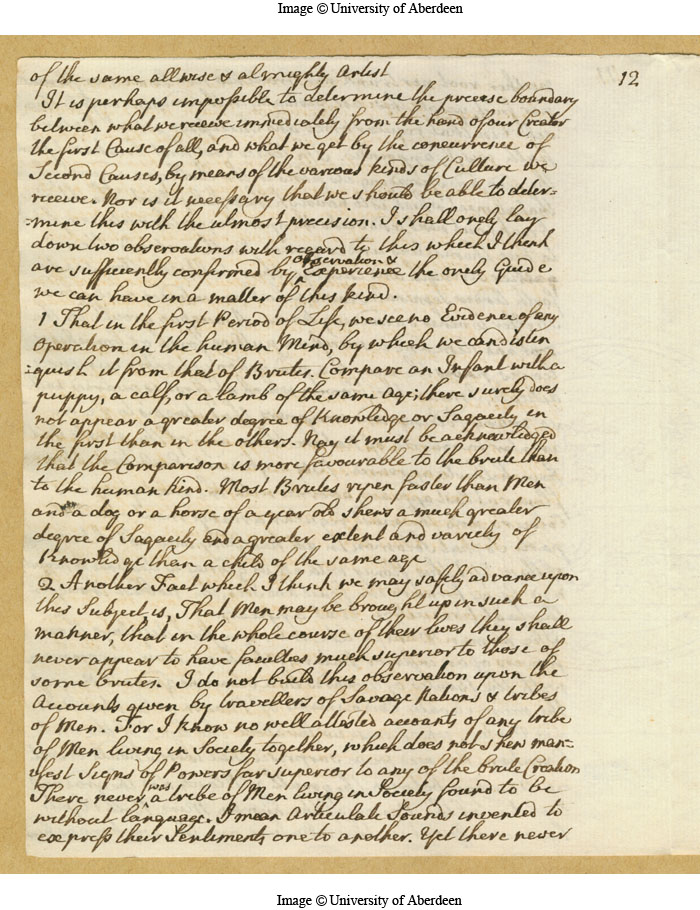 Image © University of Aberdeen
12
of the same allwise & almighty Artist
It is perhaps impossible to determine the precise boundary
between what we receive immediately from the hand of our Creator
the first Cause of all, and what we get by the concurrence of
Second Causes, by means of the various kinds of Culture we
receive. Nor is it necessary that we should be able to deter=
=mine this with the utmost precision. I shall onely lay
down two observations with regard to this which I think
are sufficiently confirmed by observation & Experience the onely Guide
we can have in a matter of this kind.
1 That in the first Period of Life, we see no Evidence of any
Operation in the human Mind, by which we can distin
=quish it from that of Brutes. Compare an Infant with a
puppy, a calf, or a lamb of the same age; there surely does
not appear a greater degree of Knowledge or Sagacity in
the first than in the others. Nay it must be acknowledged
that the Comparison is more favourable to the brute than
to the human kind. Most Brutes ripen faster than Men
and a dog or a horse of a year old shews a much greater
degree of Sagacity and a greater extent and variety of
Knowledge than a child of the same age
2 Another Fact which I think we may safely advance upon
this Subject is, That Men may be brought up in such a
manner, that in the whole course of their lives they shall
never appear to have faculties much superior to those of
some brutes. I do not build this observation upon the
Accounts given by travellers of Savage Nations & tribes
of Men. For I know no well attested accounts of any tribe
of Men living in Society together, which does not shew man=
=ifest Signs of Powers far superior to any of the brute Creation
There never was a tribe of Men living in Society found to be
without language. I mean Articulate Sounds invented to
express their Sentiments one to another. Yet there never
Image © University of Aberdeen